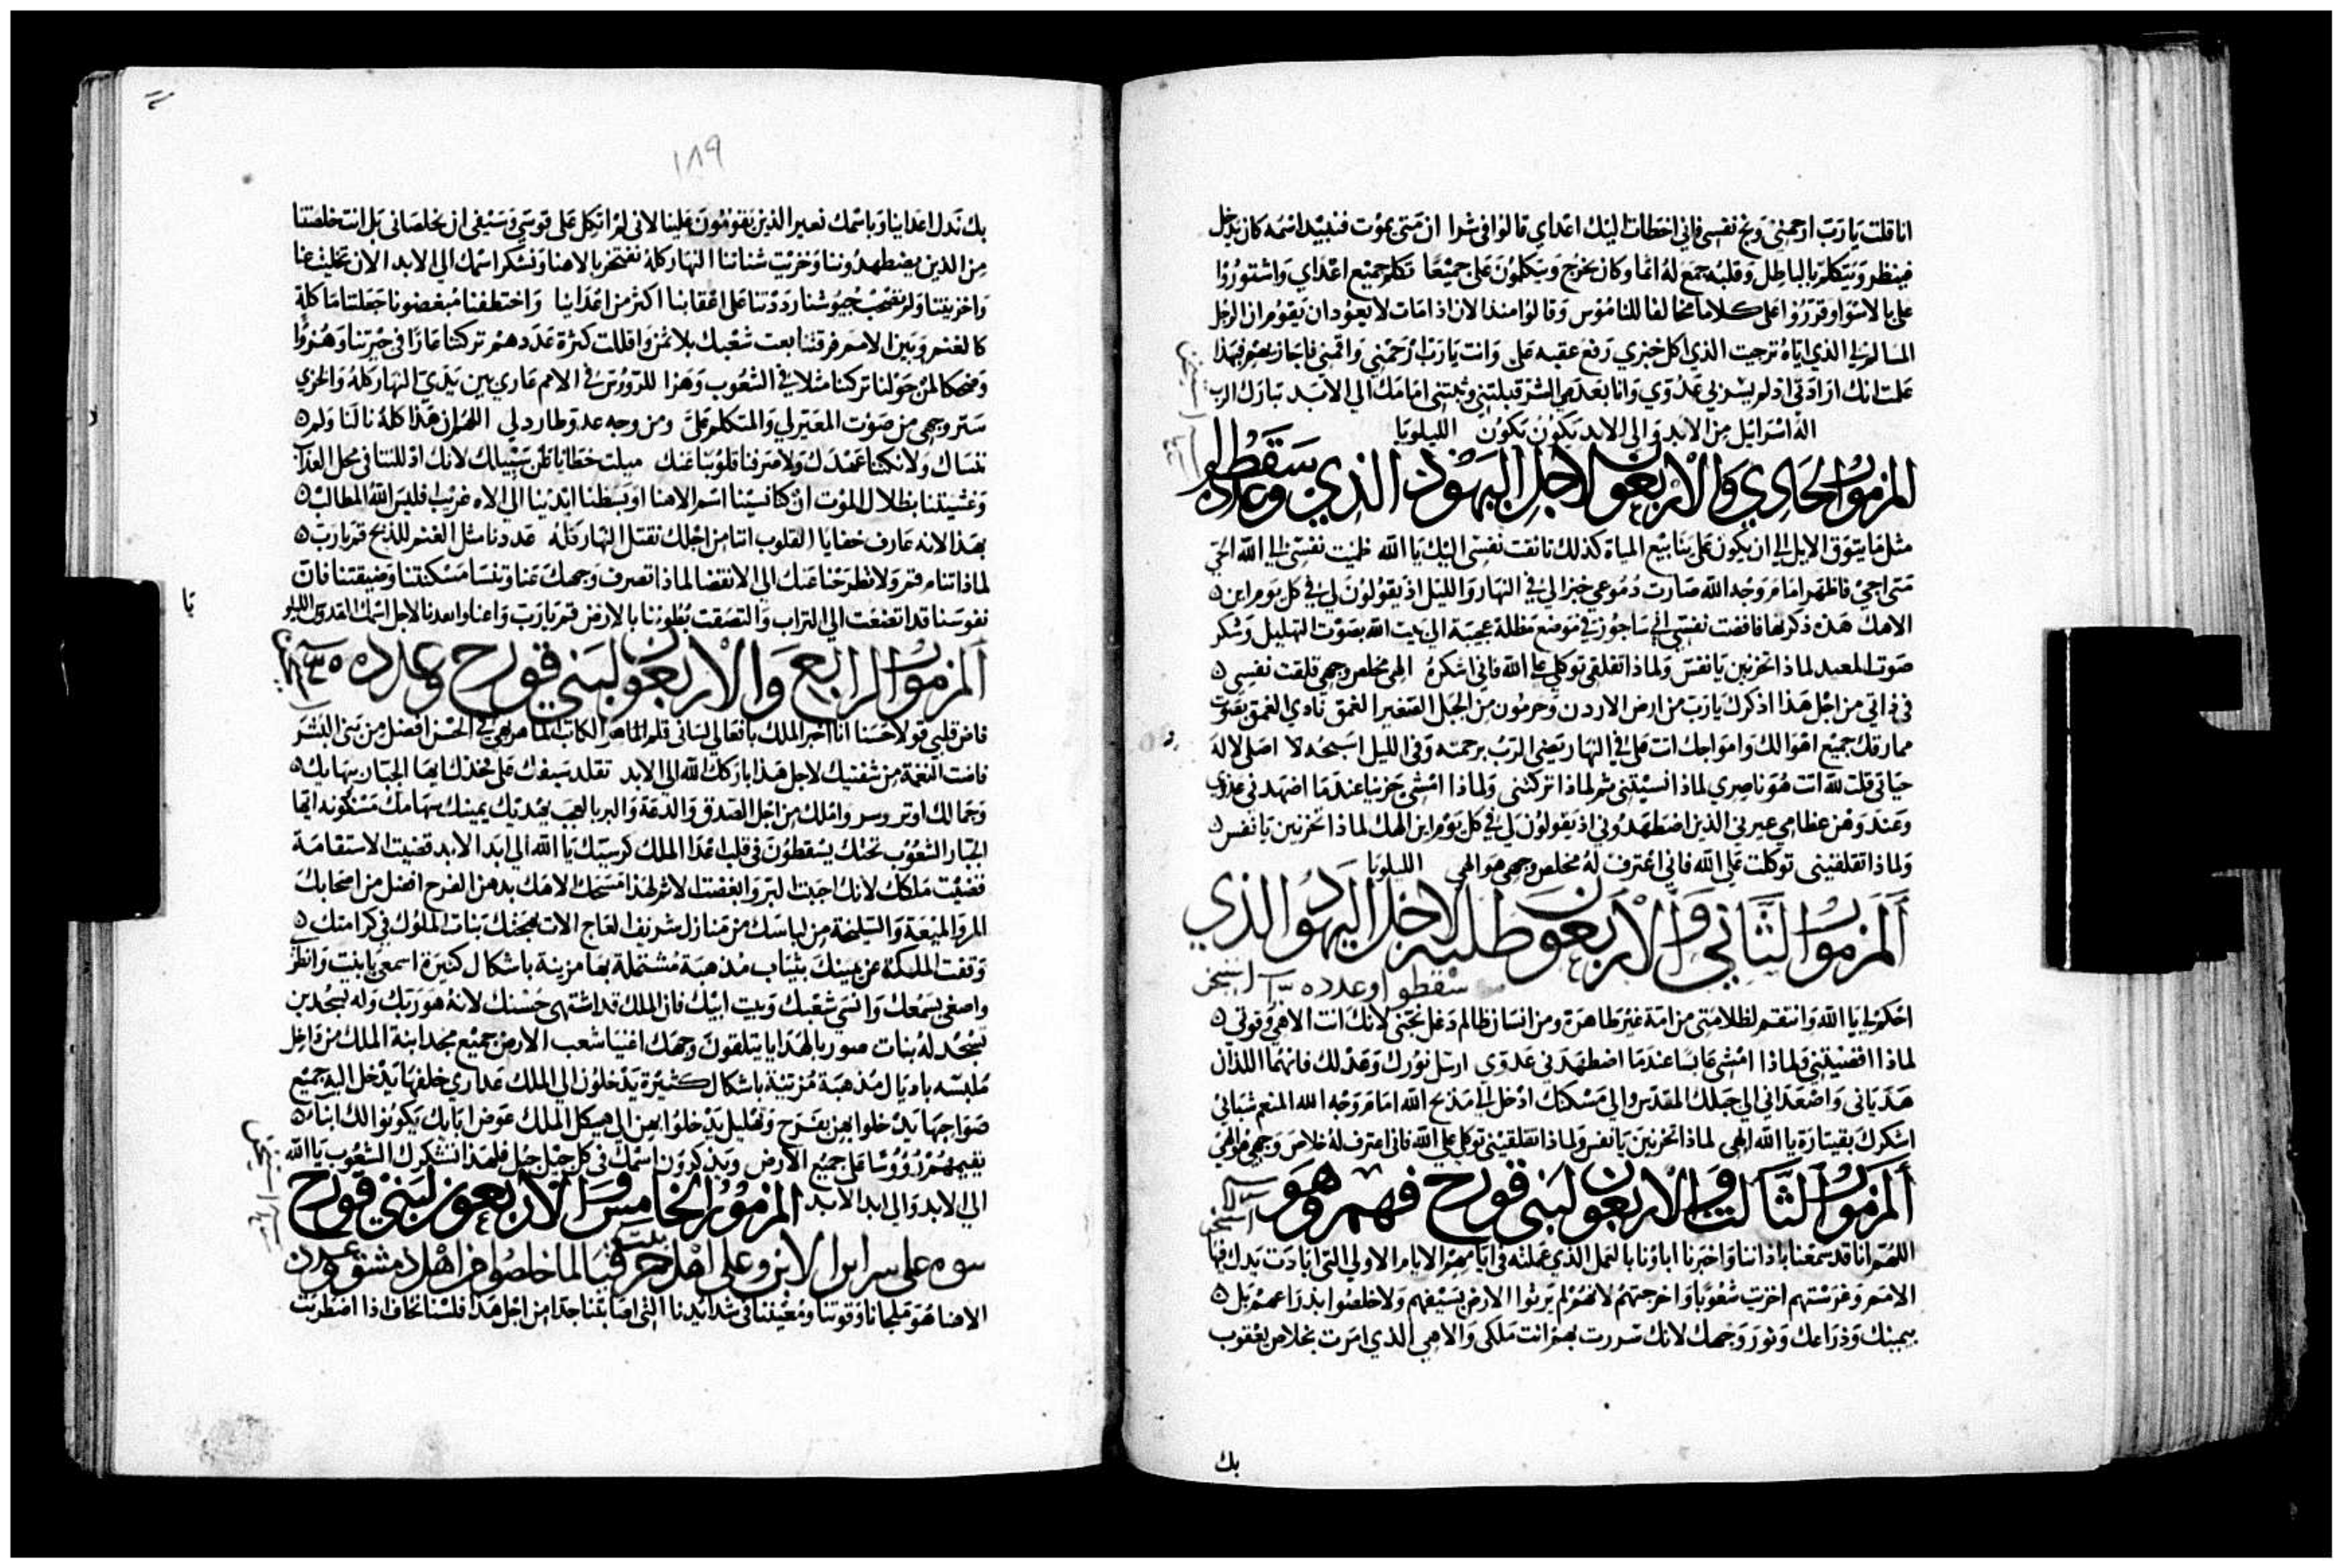 انا قلت يا رب ارحمني ونج نفسي فاني اخطات اليك اعداي قالوا في شرا ان متي يموت فنبيد اسمه كان يدخل
فينظر ويتكلم بالباطل وقلبه جمع له اثما وكان يخرج ويتكلمون علي جميعا فكلم جميع اعداي واشتوروا
علي بالاسوا وقرروا علي كلاما مخالفا للناموس وقالوا منذ الان اذا مات لا يعود ان يقوم ان الرجل
المسالم لي الذي اياه ترجيت الذي اكل خبزي رفع عقبه علي وانت يا رب ارحمني واقمني فاجازيهم فبهذا
علمت انك ارادتي اذ لم يسر بي عدوي وانا بعدم الشر قبلتني وثبتني امامك الي الابد تبارك الرب
اله اسرائيل من الابد والي الابد يكون يكون الليلويا
المزمور الحادي والاربعون لاجل اليهود الذي سقطوا وعدده
مثل ما يتوق الايل الي ان يكون علي ينابيع المياة كذلك تاقت نفسي اليك يا الله ظميت نفسي الي الله الحي
متي اجي فاظهر امام وجه الله صارت دموعي خبزا لي في النهار والليل اذ يقولون لي في كل يوم اين
الاهك هذه ذكرتها فافضت نفسي اني ساجوز في موضع مظلة عجيبة الي بيت الله بصوت التهليل وشكر
صوت المعيد لماذا تحزنين يا نفس ولماذا تقلقي توكلي علي الله فاني اشكره الهي مخلص وجهي قلقت نفسي
في ذاتي من اجل هذا اذكرك يا رب من ارض الاردن وحرمون من الجبل الصغير الغمق نادي الغمق بصوت
ممارقك جميع اهوالك وامواجك اتت علي في النهار يعني الرب برحمته وفي الليل اسبحه لا اصلي لاله
حياتي قلت لله انت هو ناصري لماذا نسيتني ثم لماذا تركتني ولماذا امشي حزينا عندما اضهدني عدوي
وعند وهن عظامي عيرني الذين اضطهدوني اذ يقولون لي في كل يوم اين الهك لماذا تحزنين يا نفس
ولماذا تقلقيني توكلت علي الله فاني اعترف له مخلص وجهي هو الهي الليلويا
المزمور الثاني والاربعون طلبه لاجل اليهود الذي
سقطوا وعدده
احكم لي يا الله وانتقم لظلامتي من امة غير طاهرة ومن انسان ظالم دغل نجني لانك انت الاهي وقوتي
لماذا اقصيتني ولماذا امشي عابسا عندما اضطهدني عدوي ارسل نورك وعدلك فانهما اللذان
هدياني واصعداني الي جبلك المقدس والي مسكنك ادخل الي مذبح الله امام وجه الله المنعم شبابي
اشكرك بقيتارة يا الله الهي لماذا تحزنين يا نفس ولماذا تقلقيني توكلي علي الله فاني اعترف له خلاص وجهي هو الهي
المزمور الثالث والاربعون لبني قورح فهم وهو
اللهم انا قد سمعنا باذاننا واخبرنا اباونا بالعمل الذي عملته في ايامهم الايام الاولي التي ابادت يدك فيها
الامم وغرستهم اخزيت شعوبا واخرجتهم لانهم لم يرثوا الارض بسيفهم ولا خلصوا بذراعهم بل
بيمينك وذراعك ونور وجهك لانك سررت بهم انت ملكي والاهي الذي امرت بخلاص يعقوب
بك
١٨٩
بك ندل اعداينا وباسمك نعير الذين يقومون علينا لاني لم اتكل علي قوسي وسيفي ان يخلصاني بل انت خلصتنا
من الذين يضطهدوننا وخزيت شناتنا النهار كله نفتخر بالاهنا ونشكر اسمك الي الابد الان تخليت عنا
واخزيتنا ولم تصحب جيوشنا رددتنا علي اعقابنا اكثر من اعداينا واختطفنا مبغضونا جعلتنا ماكلة
كالغنم وبين الامم فرقتنا بعت شعبك بلا ثمن واقللت كثرة عددهم تركتنا عارا في جيرتنا وهزوا
وضحكا لمن حولنا تركتنا مثلا في الشعوب وهزا للرووس في الامم عاري بين يدي النهار كله والخزي
ستر وجهي من صوت المعير لي والمتكلم علي ومن وجه عدو طارد لي اللهم ان هذا كله نالنا ولم
ننساك ولا نكثنا عهدك ولا صرفنا قلوبنا عنك ميلت خطايانا عن سبيلك لانك اذللتنا في محل العذاب
وغشيتنا بظلال الموت ان كنا نسينا اسم الاهنا او بسطنا ايدينا الي الاه غريب فليس الله المطالب
بهذا لانه عارف خفايا القلوب اننا من اجلك نقتل النهار كله عددنا مثل الغنم للذبح قم يا رب
لماذا تنام قم ولا تطرحنا عنك الي الانقضا لماذا تصرف وجهك عنا وتنسا مسكنتنا وضيقتنا فان
نفوسنا قد اتضعت الي التراب والتصقت بطوننا بالارض قم يا رب واعنا وانقدنا لاجل اسمك القدوس الليلو
يا
المزمور الرابع والاربعون لبني قورح وعدده
فاض قلبي قولا حسنا انا اخبر الملك بافعالي لساني قلم الكاتب الماهر بهي في الحسن افضل من بني البشر
فاضت النعمة من شفتيك لاجل هذا باركك الله الي الابد تقلد سيفك علي فخذك ايها الجبار ببهايك
وجمالك اوتر وسر واملك من اجل الصدق والدعة والبر بالعجب يهديك يمينك سهامك مسنونة ايها
الجبار الشعوب تحتك يسقطون في قلب اعدا الملك كرسيك يا الله الي ابد الابد قضيب الاستقامة
قضيب ملكك لانك احببت البر وابغضت الاثم لهذا مسحك الاهك بدهن الفرح افضل من اصحابك
المر والميعة والسليخة من لباسك من منازل شريفة العاج الات بهجتك بنات الملوك في كرامتك
وقفت الملكة عن يمينك بثياب مذهبة مشتملة بها مزينة باشكال كثيرة اسمعي يا بنت وانظري
واصغي بسمعك وانسي شعبك وبيت ابيك فان الملك قد اشتهي حسنك لانه هو ربك وله تسجدين
تسجد له بنات صور بالهدايا يتلقون وجهك اغنيا شعب الارض جميع مجد ابنة الملك من داخل
ملبسه باذيال مذهبة مزينة باشكال كثيرة يدخلون الي الملك عذاري خلفها يدخل اليه جميع
صواحبها يدخلوا بهن بفرح وتهليل يدخلوا بهن الي هيكل الملك عوض ابايك يكونوا لك ابنا
تقيمهم رووسا علي جميع الارض ويذكرون اسمك في كل جيل جيل فلهذا تشكرك الشعوب يا الله
الي الابد والي ابد الابد المزمور الخامس والاربعون لبني قورح
الاهنا هو ملجانا وقوتنا ومعيننا في شدايدنا التي اصابتنا جدا من اجل هذا فلسنا نخاف اذا اضطربت